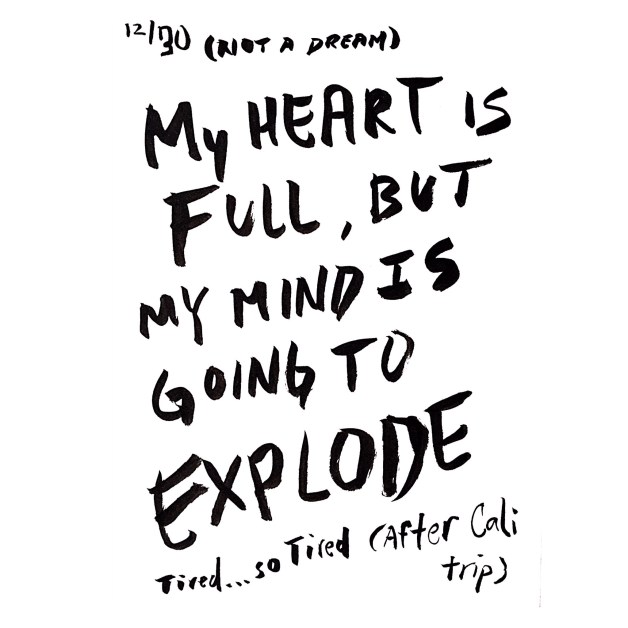 12/30 (NOT A DREAM)
My HEART IS
FULL, BUT
MY MIND IS
GOING TO
EXPLODE
Tired...so Tired (After Cali
trip)